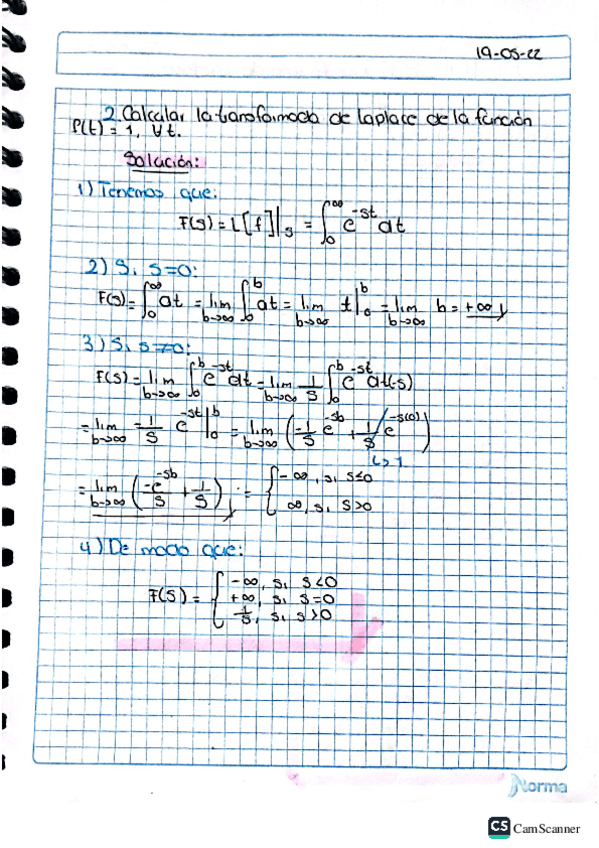 19-05-22
2. Calcular la transformada de laplace de la función
P(t) = 1, ∀t.
Solución:
1) Tenemos que:
F(s) = L[f]|s = ∫₀^∞ e^-st dt
2) Si s=0:
F(s) = ∫₀^∞ dt = lim b→∞ ∫₀^b dt = lim b→∞ t|₀^b = lim b→∞ b = +∞ y
3) Si s≠0:
F(s) = lim b→∞ ∫₀^b e^-st dt = lim b→∞ 1/s ∫₀^b e^-st dt(-s)
= lim b→∞ -1/s e^-st|₀^b = lim b→∞ (-1/s e^-sb + 1/s e^-s(0))
↳ 1
= lim b→∞ (-e^-sb/s + 1/s) = { -∞, si s≤0
∞, si s>0
4) De modo que:
F(s) = { -∞, si s<0
+∞, si s=0
1/s, si s>0
Norma
CS CamScanner